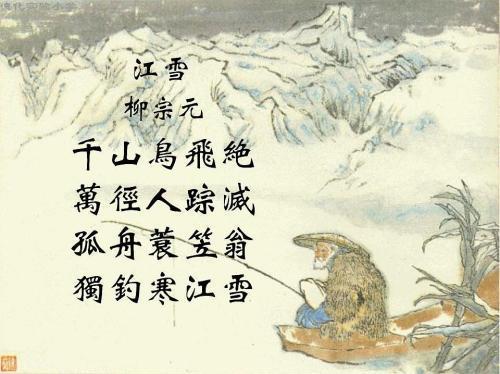 德化实验小学
江雪
柳宗元
千山鳥飛絶
萬徑人踪滅
孤舟蓑笠翁
獨釣寒江雪